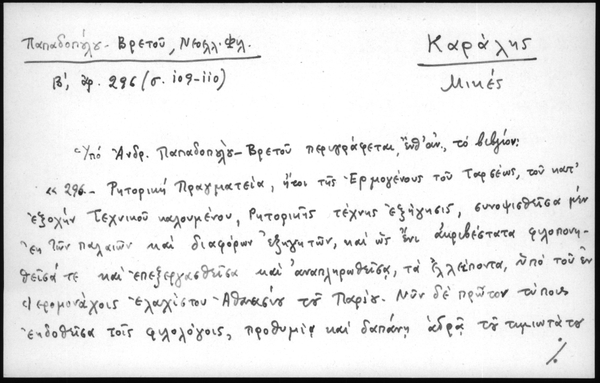 Παπαδοπούλου-Βρετοῦ, Νεοελλ. Φιλ.
Καράλης
Β', ἀρ. 296 (σ. 109-110)
Μικές
Ὑπό Ἀνδρ. Παπαδοπούλου-Βρετοῦ περιγράφεται, ἔνθ' ἀν., τό βιβλίον:
«296.- Ρητορική Πραγματεία, ἤτοι τῆς Ἑρμογένους τοῦ Ταρσέως, τοῦ κατ'
ἐξοχήν Τεχνικοῦ καλουμένου, Ρητορικῆς τέχνης ἐξήγησις, συνοψισθεῖσα μέν
ἐκ τῶν παλαιῶν καί διαφόρων ἐξηγητῶν, καί ὡς ἔνι ἀκριβέστατα φιλοπονη-
θεῖσά τε καί ἐπεξεργασθεῖσα καί ἀναπληρωθεῖσα, τά ἐλλείποντα, ὑπό τοῦ ἐν
Ἱερομονάχοις ἐλαχίστου Ἀθανασίου τοῦ Παρίου. Νῦν δέ πρῶτον τύποις
ἐκδοθεῖσα τοῖς φιλολόγοις, προθυμίᾳ καί δαπάνῃ ἁδρᾷ τοῦ τιμιωτάτου
./.